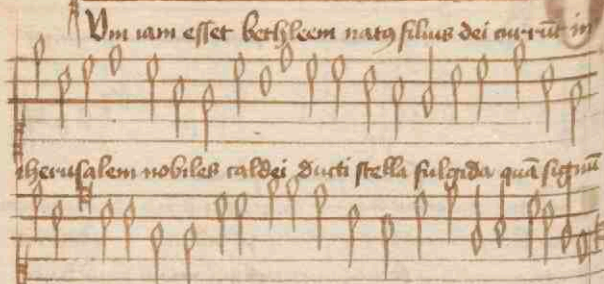 Um iam esset bethleem natꝯ filius dei currūt in
iherusalem nobiles caldei ducti stella fulgida quā signū